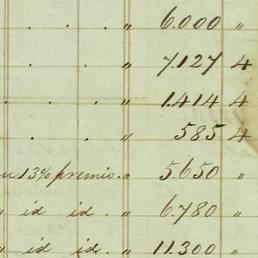 . . " 6.000 "
. . " 7.127 4
. . . " 1.414 4
. . " 585 4
13% premio. " 5.650 "
" id id. " 6.780 "
" id id. " 11.300 "